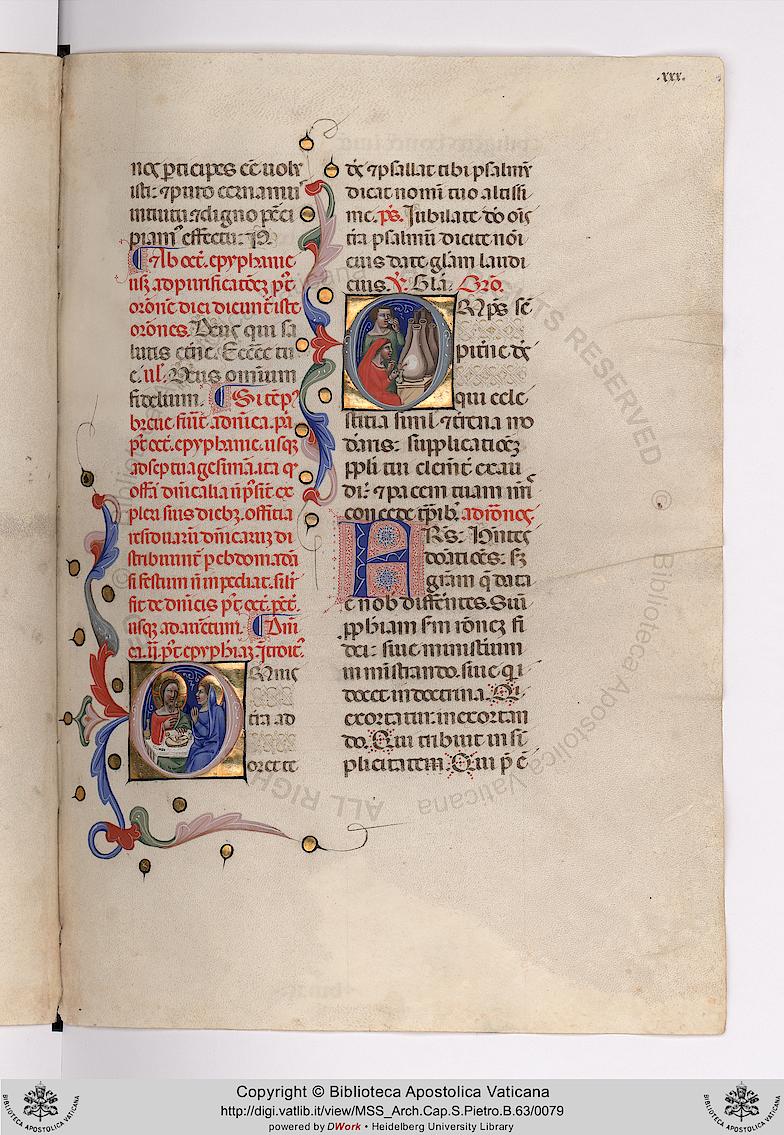 .xxx.
nos participes ee uolu
isti: et puro cernamus
intuitu et digno perci
piamus effectu. P.
Ab oct. epyphanie
usque ad purificationez post
orōnē diei dicunt iste
orōnes. Deus qui sa
lutis etne. Ecclie tu
e. ul. Deus omnium
fidelium. Si temp
breue fuit a dnica pa
post oct. epyphanie usque
ad septuagesima. ita q
offa dnicalia n psit ex
pleri suis diebz. officia
distribuunt p ebdomada
si festum n impediat. sili
fit de dnicis post oct. pet.
usque ad auentum. Dni
ca .ii. post epyphiaz Itroit
Omnis
tra ad
oret te
ds et psallat tibi psalmu
dicat nomi tuo altissi
me. ps. Jubilate deo ois
tra psalmu dicite noi
eius date glam laudi
eius. V. Gla. Oro.
Omps se
piterne ds
qui cele
stia simul et terrena mo
deraris: supplicationez
ppli tui clement exau
di: et pacem tuam nris
concede tpib. ad romos
Frs. Hntes
donationes: sz
gram q data
e nob differentes. Siue
pphiam sm ronez fi
dei: siue ministium
in ministrando. siue qi
docet in doctrina. Qi
exortatur. in exortan
do. Qui tribuit in si
plicitatem. Qui p e
ALL RIGHTS RESERVED © Biblioteca Apostolica Vaticana
Copyright © Biblioteca Apostolica Vaticana
http://digi.vatlib.it/view/MSS_Arch.Cap.S.Pietro.B.63/0079
powered by DWork • Heidelberg University Library
BIBLIOTECA APOSTOLICA VATICANA
BIBLIOTECA APOSTOLICA VATICANA